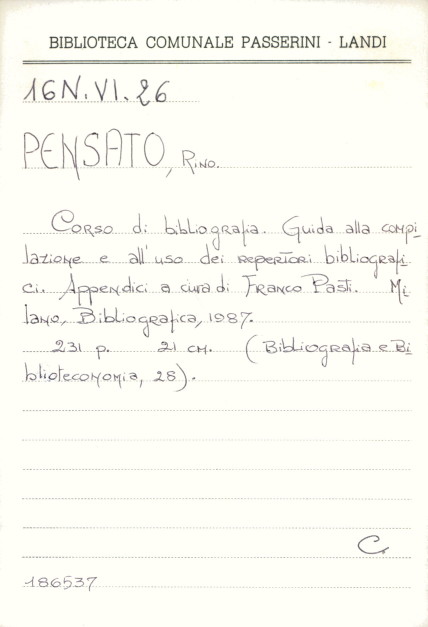 BIBLIOTECA COMUNALE PASSERINI - LANDI
16N.VI.26
PENSATO, RINO.
Corso di bibliografia. Guida alla compi
lazione e all'uso dei repertori bibliografi
ci. Appendici a cura di Franco Pasti. Mi
lano, Bibliografica, 1987.
231 p. 21 cm. (Bibliografia e Bi
blioteconomia, 28).
C.
186537